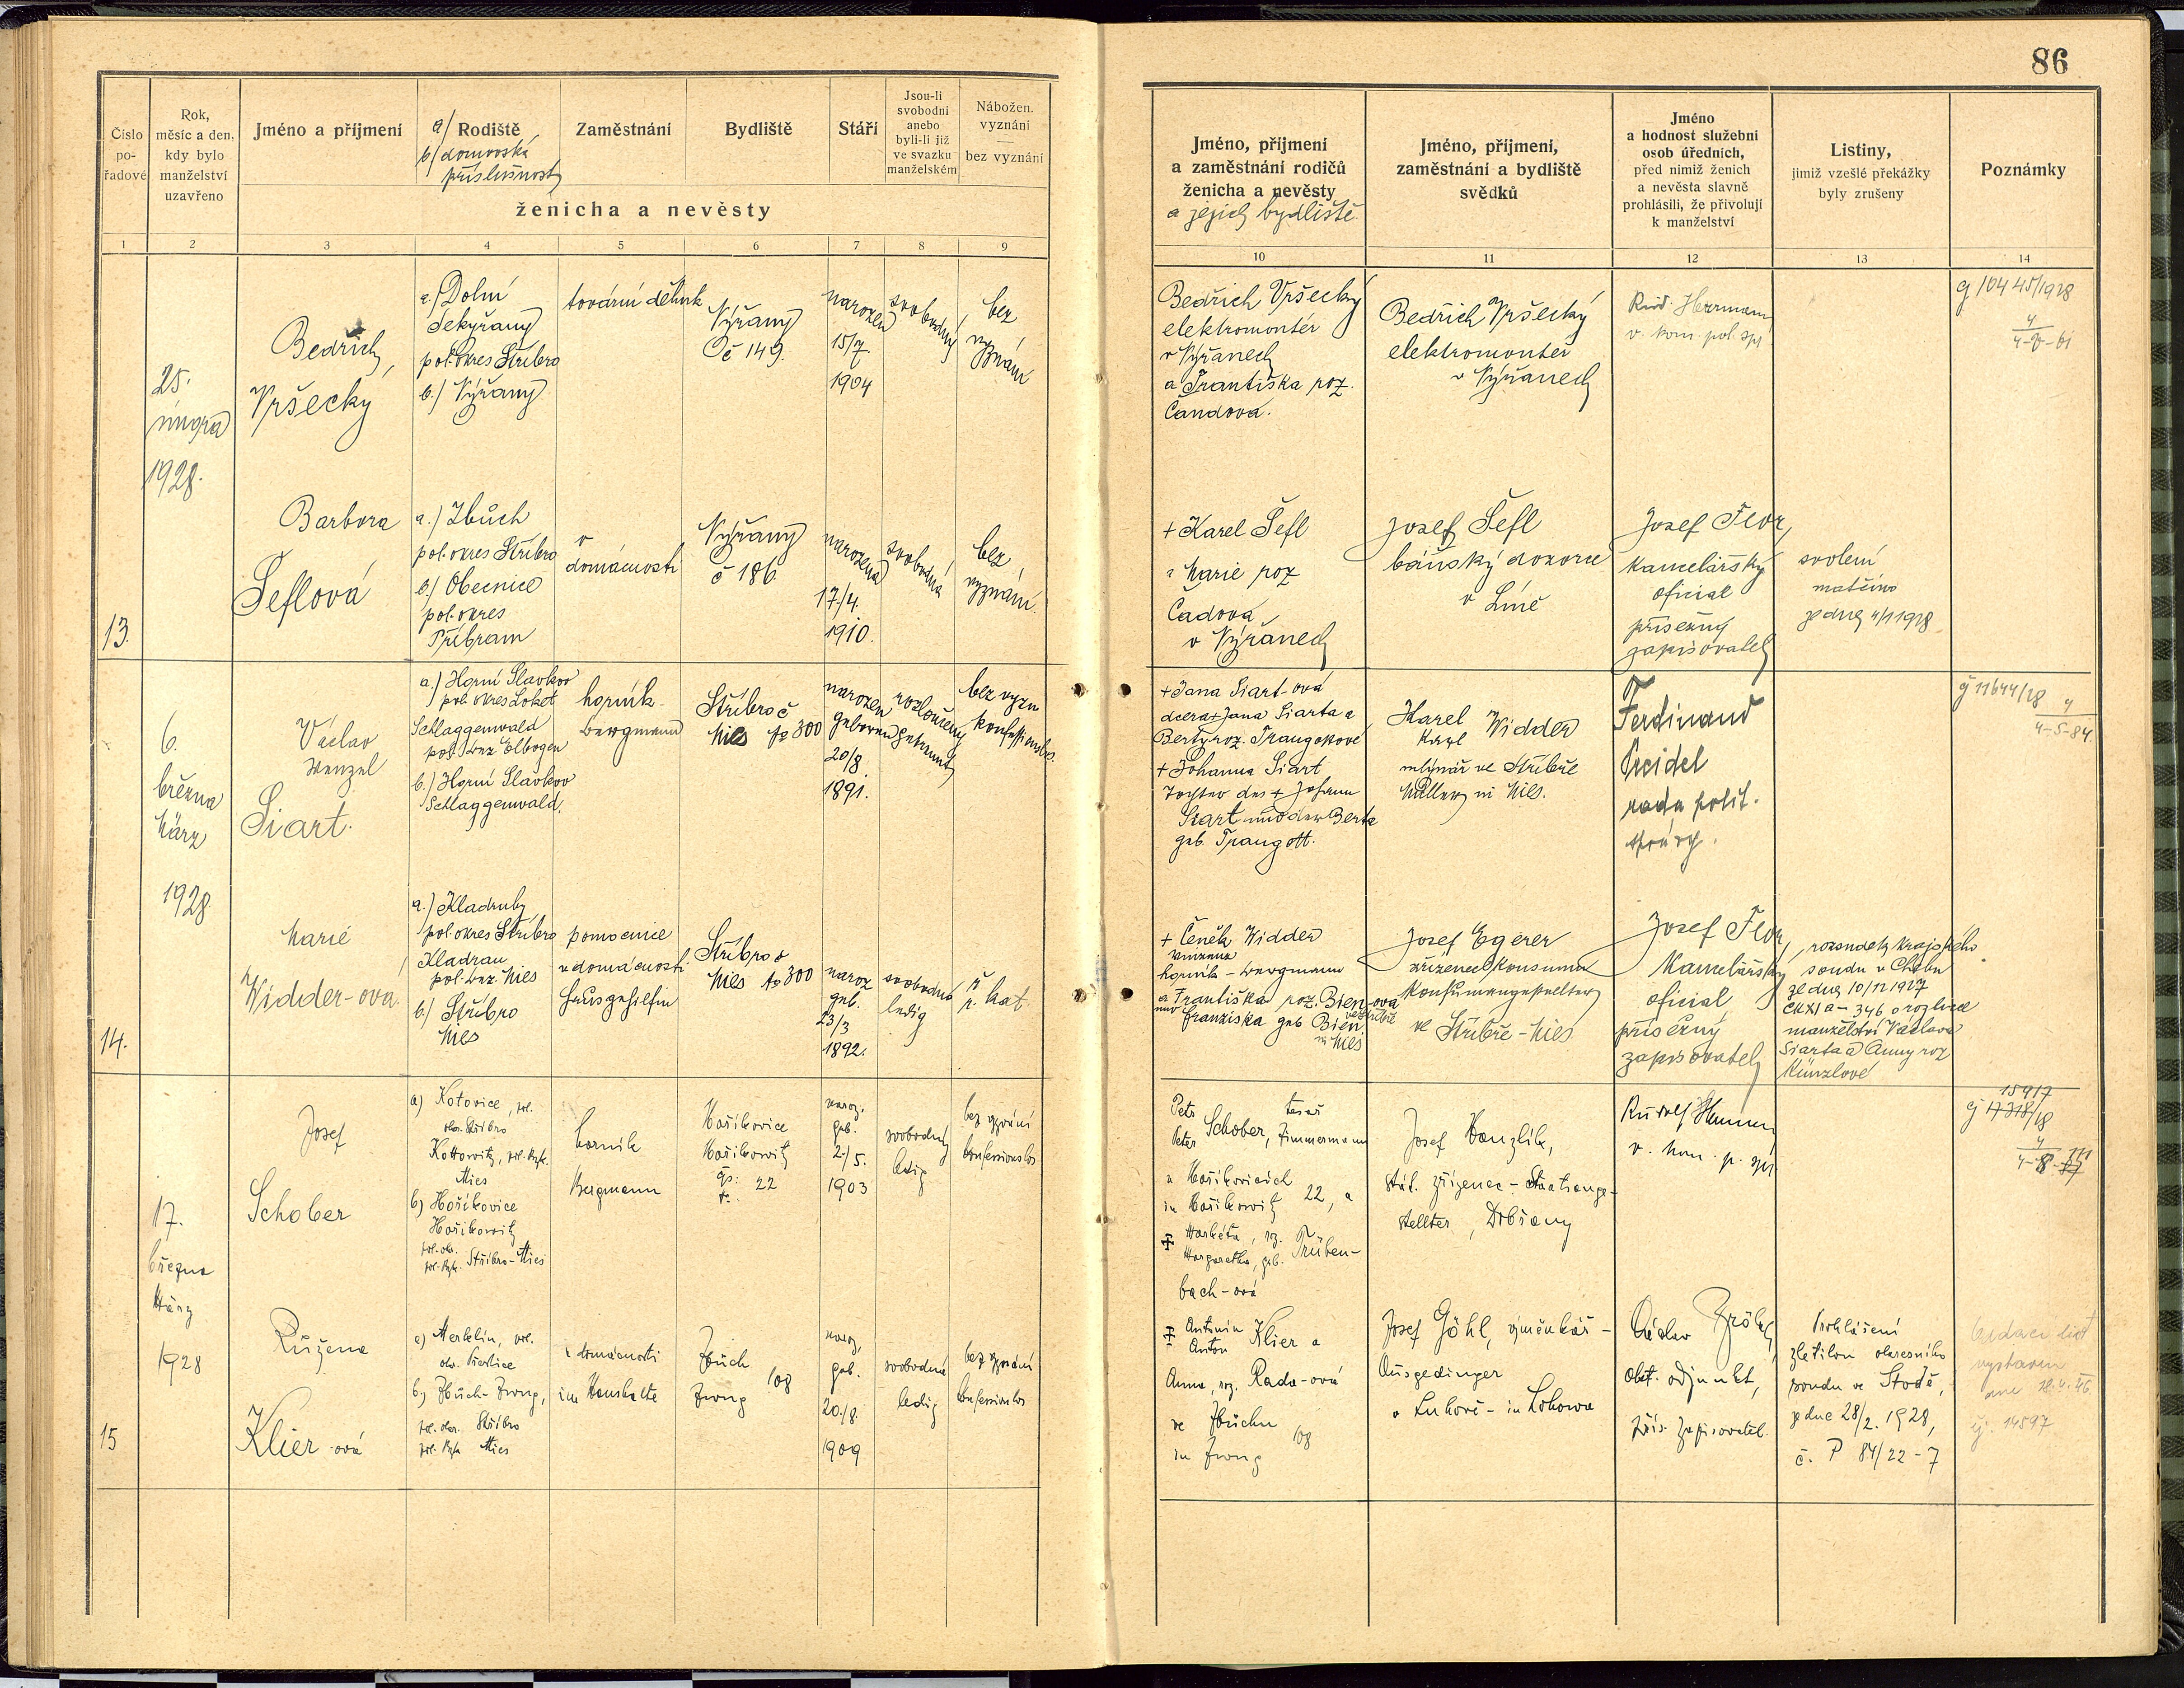 86
Číslo
po-
řadové
Rok,
měsíc a den,
kdy bylo
manželství
uzavřeno
Jméno a příjmení
a/ Rodiště
b/ domovská
příslušnost
Zaměstnání
Bydliště
Stáří
Jsou-li
svobodni
anebo
byli-li již
ve svazku
manželském
Nábožen.
vyznání
bez vyznání
ženicha a nevěsty
Jméno, příjmení
a zaměstnání rodičů
ženicha a nevěsty
a jejich bydliště
Jméno, příjmení,
zaměstnání a bydliště
svědků
Jméno
a hodnost služební
osob úředních,
před nimiž ženich
a nevěsta slavně
prohlásili, že přivolují
k manželství
Listiny,
jimiž vzešlé překážky
byly zrušeny
Poznámky
1 2 3 4 5 6 7 8 9
10 11 12 13 14
13.
25.
února
1928.
Bedřich
Vršecký
a.) Dolní
Sekyřany
pol. okres Stříbro
b.) Nýřany
tovární dělník
Nýřany
č 149.
narozen
15/7.
1904
svobodný
bez
vyznání
Bedřich Vršecký
elektromontér
v Nýřanech
a Františka roz.
Čandová.
Bedřich Vršecký
elektromontér
v Nýřanech
Rud. Herrmann
v. kom. pol. spr.
Barbora
Šeflová
a.) Zbůch
pol. okres Stříbro
b.) Obecnice
pol. okres
Příbram
v
domácnosti
Nýřany
č 186
narozena
17./4.
1910.
svobodná
bez
vyznání.
+ Karel Šefl
a Marie roz
Čadová
v Nýřanech
Josef Šefl
báňský dozorce
v Líně
Josef Flor,
kancelářský
oficial
přísežný
zapisovatel
svolení
matčino
ze dne 4/1 1928
14.
6.
března
März
1928
Václav
Wenzel
Siart.
a.) Horní Slavkov
pol. okres Loket
Schlaggenwald
pol. Bez Elbogen
b.) Horní Slavkov
Schlaggenwald.
horník
Bergmann
Stříbro č
Mies No 300
narozen
geboren
20/8.
1891.
rozloučený
getrennt
bez vyzn
konfessionslos.
+ Jana Siart-ová
dcera + Jana Siarta a
Berty roz. Traugottové
+ Johanna Siart
Tochter des + Johann
Siart und der Berta
geb. Traugott.
Karel Widder
Karl
mlynář ve Stříbře
Müller in Mies.
Ferdinand
Preidel
rada polit.
správy.
Marie
Widder-ová
a.) Kladruby
pol. okres Stříbro
Kladrau
pol. Bez. Mies
b.) Stříbro
Mies
pomocnice
v domácnosti
Hausgehilfin
Stříbro č
Mies No 300
naroz
geb.
23/3
1892.
svobodná
ledig
ř.
r. kat.
+ Čeněk Widder
Vinzenz
horník - Bergmann
a Františka roz. Bien-ová
und Franziska geb Bien.
ve Stříbře
in Mies
Josef Egerer
zřízenec konsumu
Konsumangestellter
ve Stříbře - Mies
Josef Flor,
kancelářský
oficial
přísežný
zapisovatel
rozsudek krajského
soudu v Chebu
ze dne 10/11 1927
o rozluce
manželství Václava
Siarta a Anny roz
Künzlové
15
17.
března
März
1928
Josef
Schober
a) Kotovice, pol.
okr. Stříbro
Kottowitz, pol. Bzk.
Mies
b) Hoříkovice
Hoříkowitz
pol. okr.
pol. Bzk. Stříbro-Mies
horník
Bergmann
Hoříkovice
Hoříkowitz
čp. 22
naroz.
geb.
2./5.
1903
svobodný
ledig
bez vyznání
konfessionslos
Petr tesař
Peter Schober, Zimmermann
v Hoříkovicích
in Hoříkowitz 22, a
Markéta, roz.
Margaretha, geb. Trüben-
bach-ová
Josef Hanzlík,
stát. zřízenec - Staatsange-
stellter, Dobřany
Rudolf Herrmann
v. kom. p. spr.
15917
Růžena
Klier-ová
a) Merklín, pol.
okr. Přeštice
b) Zbůch-Zwug,
pol. okr. Stříbro
pol. Bzk Mies
v domácnosti
im Haushalte
Zbůch
Zwug 108
naroz.
geb.
20./8.
1909
svobodná
ledig
bez vyznání
konfessionslos
Antonín
Anton Klier a
Anna, roz. Rada-ová
ve Zbůchu
in Zwug 108
Josef Göhl, výměnkář -
Ausgedinger
v Luhově - in Lohowa
Václav
okr. adjunkt,
přís. zapisovatel.
Prohlášení
zletilou okresního
soudu ve Stodě,
ze dne 28/2. 1928,
č. P 84/22-7
oddací list
vystaven
dne 18.4.46
čj. 14597